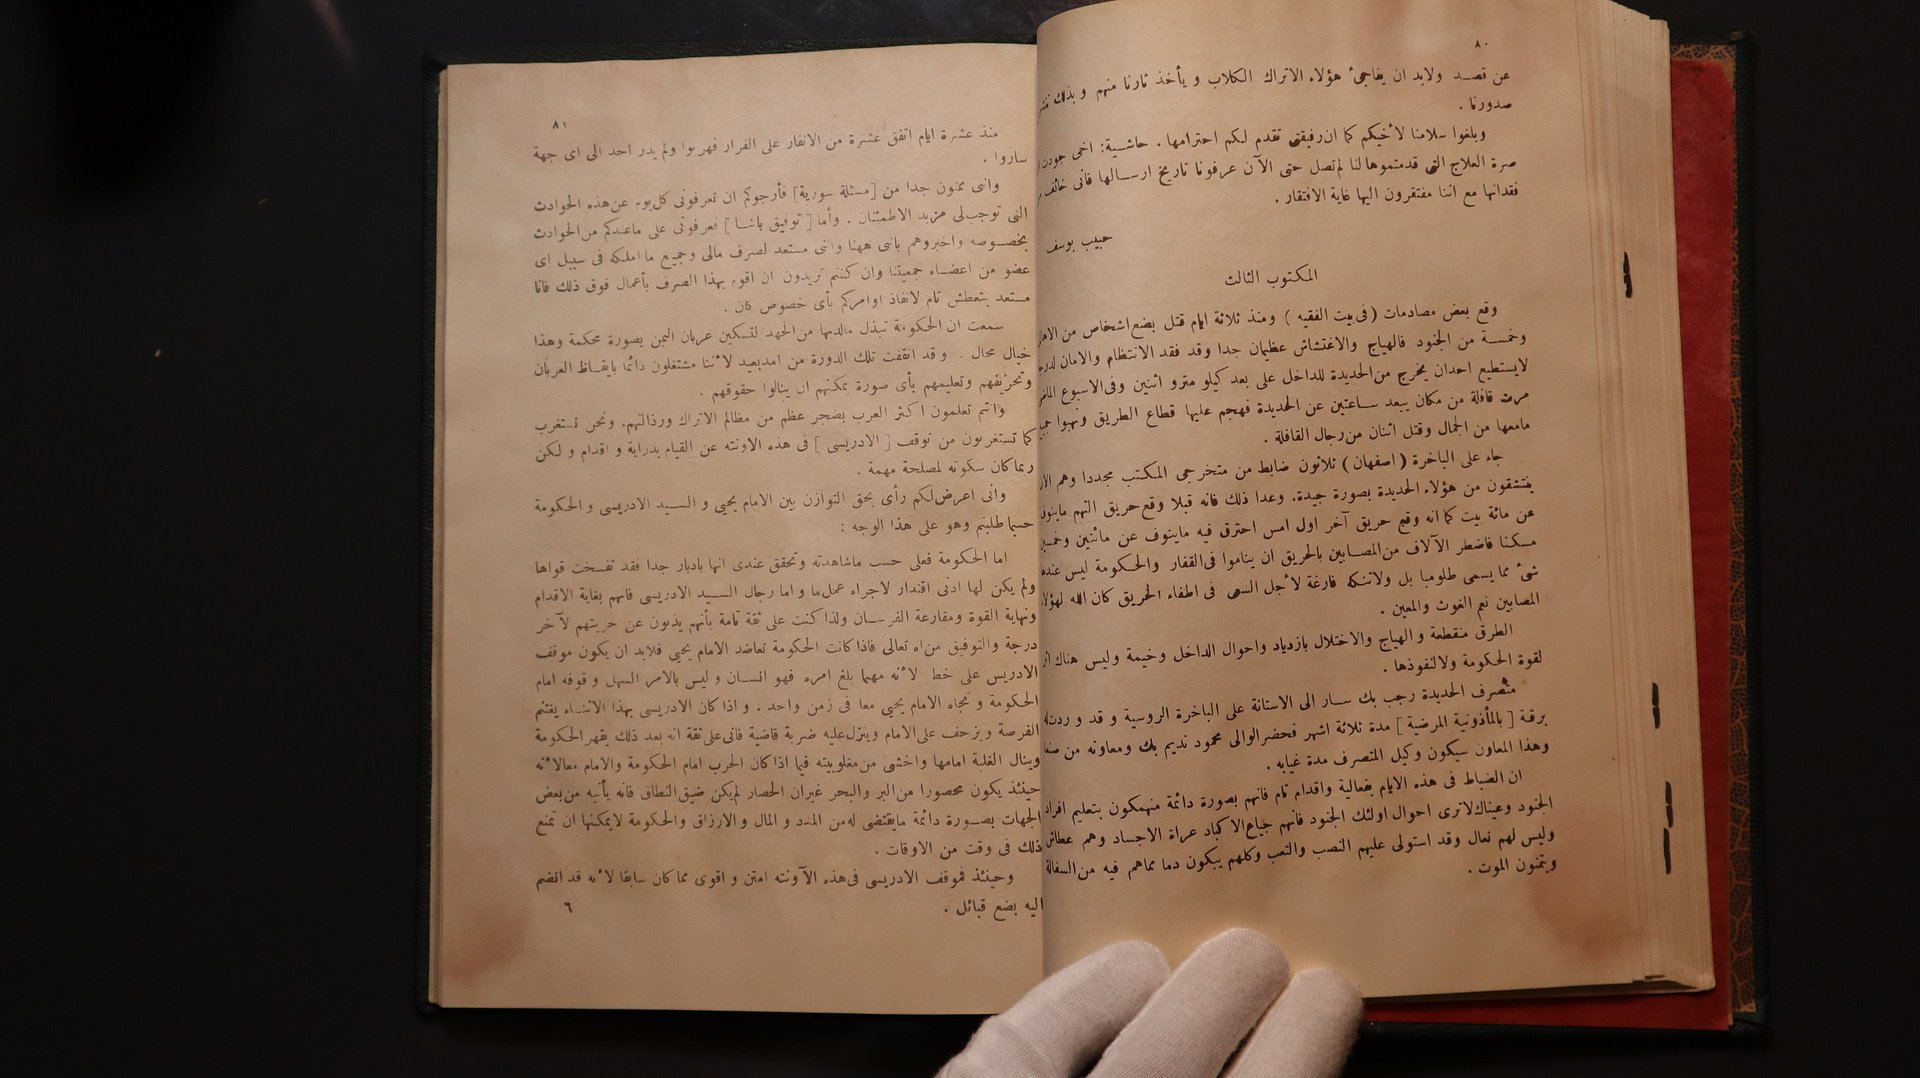 ٨٠
عن قصد ولابد ان يفاجئ هؤلاء الاتراك الكلاب و يأخذ ثارنا منهم و بذلك
صدورنا .
وبلغوا سلامنا لأخيكم كما ان رفيقتى تقدم لكم احترامها . حاشية: اخى جودت
صرة العلاج التى قدمتموها لنا لم تصل حتى الآن عرفونا تاريخ ارسالها فانى خائف
فقدانها مع اننا مفتقرون اليها غاية الافتقار .
حبيب يوسف
المكتوب الثالث
وقع بعض مصادمات ( فى بيت الفقيه ) ومنذ ثلاثة ايام قتل بضع اشخاص من
وخمسة من الجنود فالهياج والاغتشاش عظيمان جدا وقد فقد الانتظام والامان
لايستطيع احدان يخرج من الحديدة للداخل على بعد كيلو مترو اثنين وفى الاسبوع
مرت قافلة من مكان يبعد ساعتين عن الحديدة فهجم عليها قطاع الطريق ونهبوا
مامعها من الجمال وقتل اثنان من رجال القافلة .
جاء على الباخرة ( اصفهان ) ثلاثون ضابط من متخرجى المكتب مجددا وهم
يفتشقون من هؤلاء الحديدة بصورة جيدة. وعدا ذلك فانه قبلا وقع حريق التهم
عن مائة بيت كما انه وقع حريق آخر اول امس احترق فيه ماينوف عن مائتين
مسكنا فاضطر الآلاف من المصابين بالحريق ان يناموا فى القفار والحكومة ليس
شئ مما يسمى طلومبا بل ولاتنكه فارغة لأجل السعى فى اطفاء الحريق كان الله
المصابين نعم الغوث والمعين .
الطرق منقطعة و الهياج والاختلال بازدياد واحوال الداخل وخيمة وليس هناك
لقوة الحكومة ولالنفوذها .
متصرف الحديدة رجب بك سار الى الاستانة على الباخرة الروسية و قد و ردت
برقة [ بالمأذونية المرضية ] مدة ثلاثة اشهر فحضر الوالى محمود نديم بك ومعاونه من
وهذا المعاون سيكون وكيل المتصرف مدة غيابه .
ان الضباط فى هذه الايام بفعالية واقدام تام فانهم بصورة دائمة منهمكون بتعليم افراد
الجنود وعيناك لاترى احوال اولئك الجنود فانهم جياع الاكباد عراة الاجساد وهم عطاش
وليس لهم نعال وقد استولى عليهم النصب والتعب وكلهم يبكون دما مماهم فيه من السفالة
ويتمنون الموت .
٨١
منذ عشرة ايام اتفق عشرة من الانفار على الفرار فهربوا ولم يدر احد الى اى جهة
ساروا .
وانى ممنون جدا من [مسئلة سورية] فأرجوكم ان تعرفونى كل يوم عن هذه الحوادث
التى توجب لى مزيد الاطمئنان . وأما [ توفيق باشا ] فعرفونى على ماعندكم من الحوادث
بخصوصه واخبروهم بانى ههنا وانى مستعد لصرف مالى وجميع ما املكه فى سبيل اى
عضو من اعضاء جمعيتنا وان كنتم تريدون ان اقوم بهذا الصرف بأعمال فوق ذلك فانا
مستعد بتعطش تام لانفاذ اوامركم بأى خصوص كان .
سمعت ان الحكومة تبذل مالديها من الجهد لتسكين عربان اليمن بصورة محكمة وهذا
خيال محال . و قد انقفت تلك الدورة من امدبعيد لأننا مشتغلون دائما بايقاظ العربان
وتعليمهم بأى صورة يمكنهم ان ينالوا حقوقهم .
وانتم تعلمون اكثر العرب بضجر عظم من مظالم الاتراك ورذالتهم. ونحن نستغرب
كما تستغربون من توقف [ الادريسى ] فى هذه الاونته عن القيام بدراية و اقدام و لكن
ربما كان سكوته لمصلحة مهمة .
وانى اعرض لكم رأى بحق التوازن بين الامام يحيى و السيد الادريسى و الحكومة
حسبما طلبتم وهو على هذا الوجه :
اما الحكومة فعلى حسب ماشاهدته وتحقق عندى انها بادبار جدا فقد تفسخت قواها
ولم يكن لها ادنى اقتدار لاجراء عمل ما و اما رجال السيد الادريسى فانهم بغاية الاقدام
ونهاية القوة ومقارعة الفرسان ولذا كنت على ثقة تامة بأنهم يذبون عن حريتهم لآخر
درجة والتوفيق من الله تعالى فاذا كانت الحكومة تعاضد الامام يحيى فلابد ان يكون موقف
الادريس على خط لأنه مهما بلغ امره فهو انسان و ليس بالامر السهل و قوفه امام
الحكومة و تجاه الامام يحيى معا فى زمن واحد . و اذا كان الادريسى بهذا الاثناء يغتنم
الفرصة ويزحف على الامام وينزل عليه ضربة قاضية فانى على ثقة انه بعد ذلك يقهر الحكومة
وينال الغلبة امامها واخشى من مغلوبيته فيما اذا كان الحرب امام الحكومة والامام معالأنه
حينئذ يكون محصورا من البر والبحر غيران الحصار لم يكن ضيق النطاق فانه يأتيه من بعض
الجهات بصورة دائمة مايقتضى له من المدد و المال و الارزاق والحكومة لايمكنها ان تمنع
ذلك فى وقت من الاوقات .
وحينئذ فموقف الادريسى فى هذه الآونته امتن و اقوى مما كان سابقا لأنه قد انضم
اليه بضع قبائل .
٦